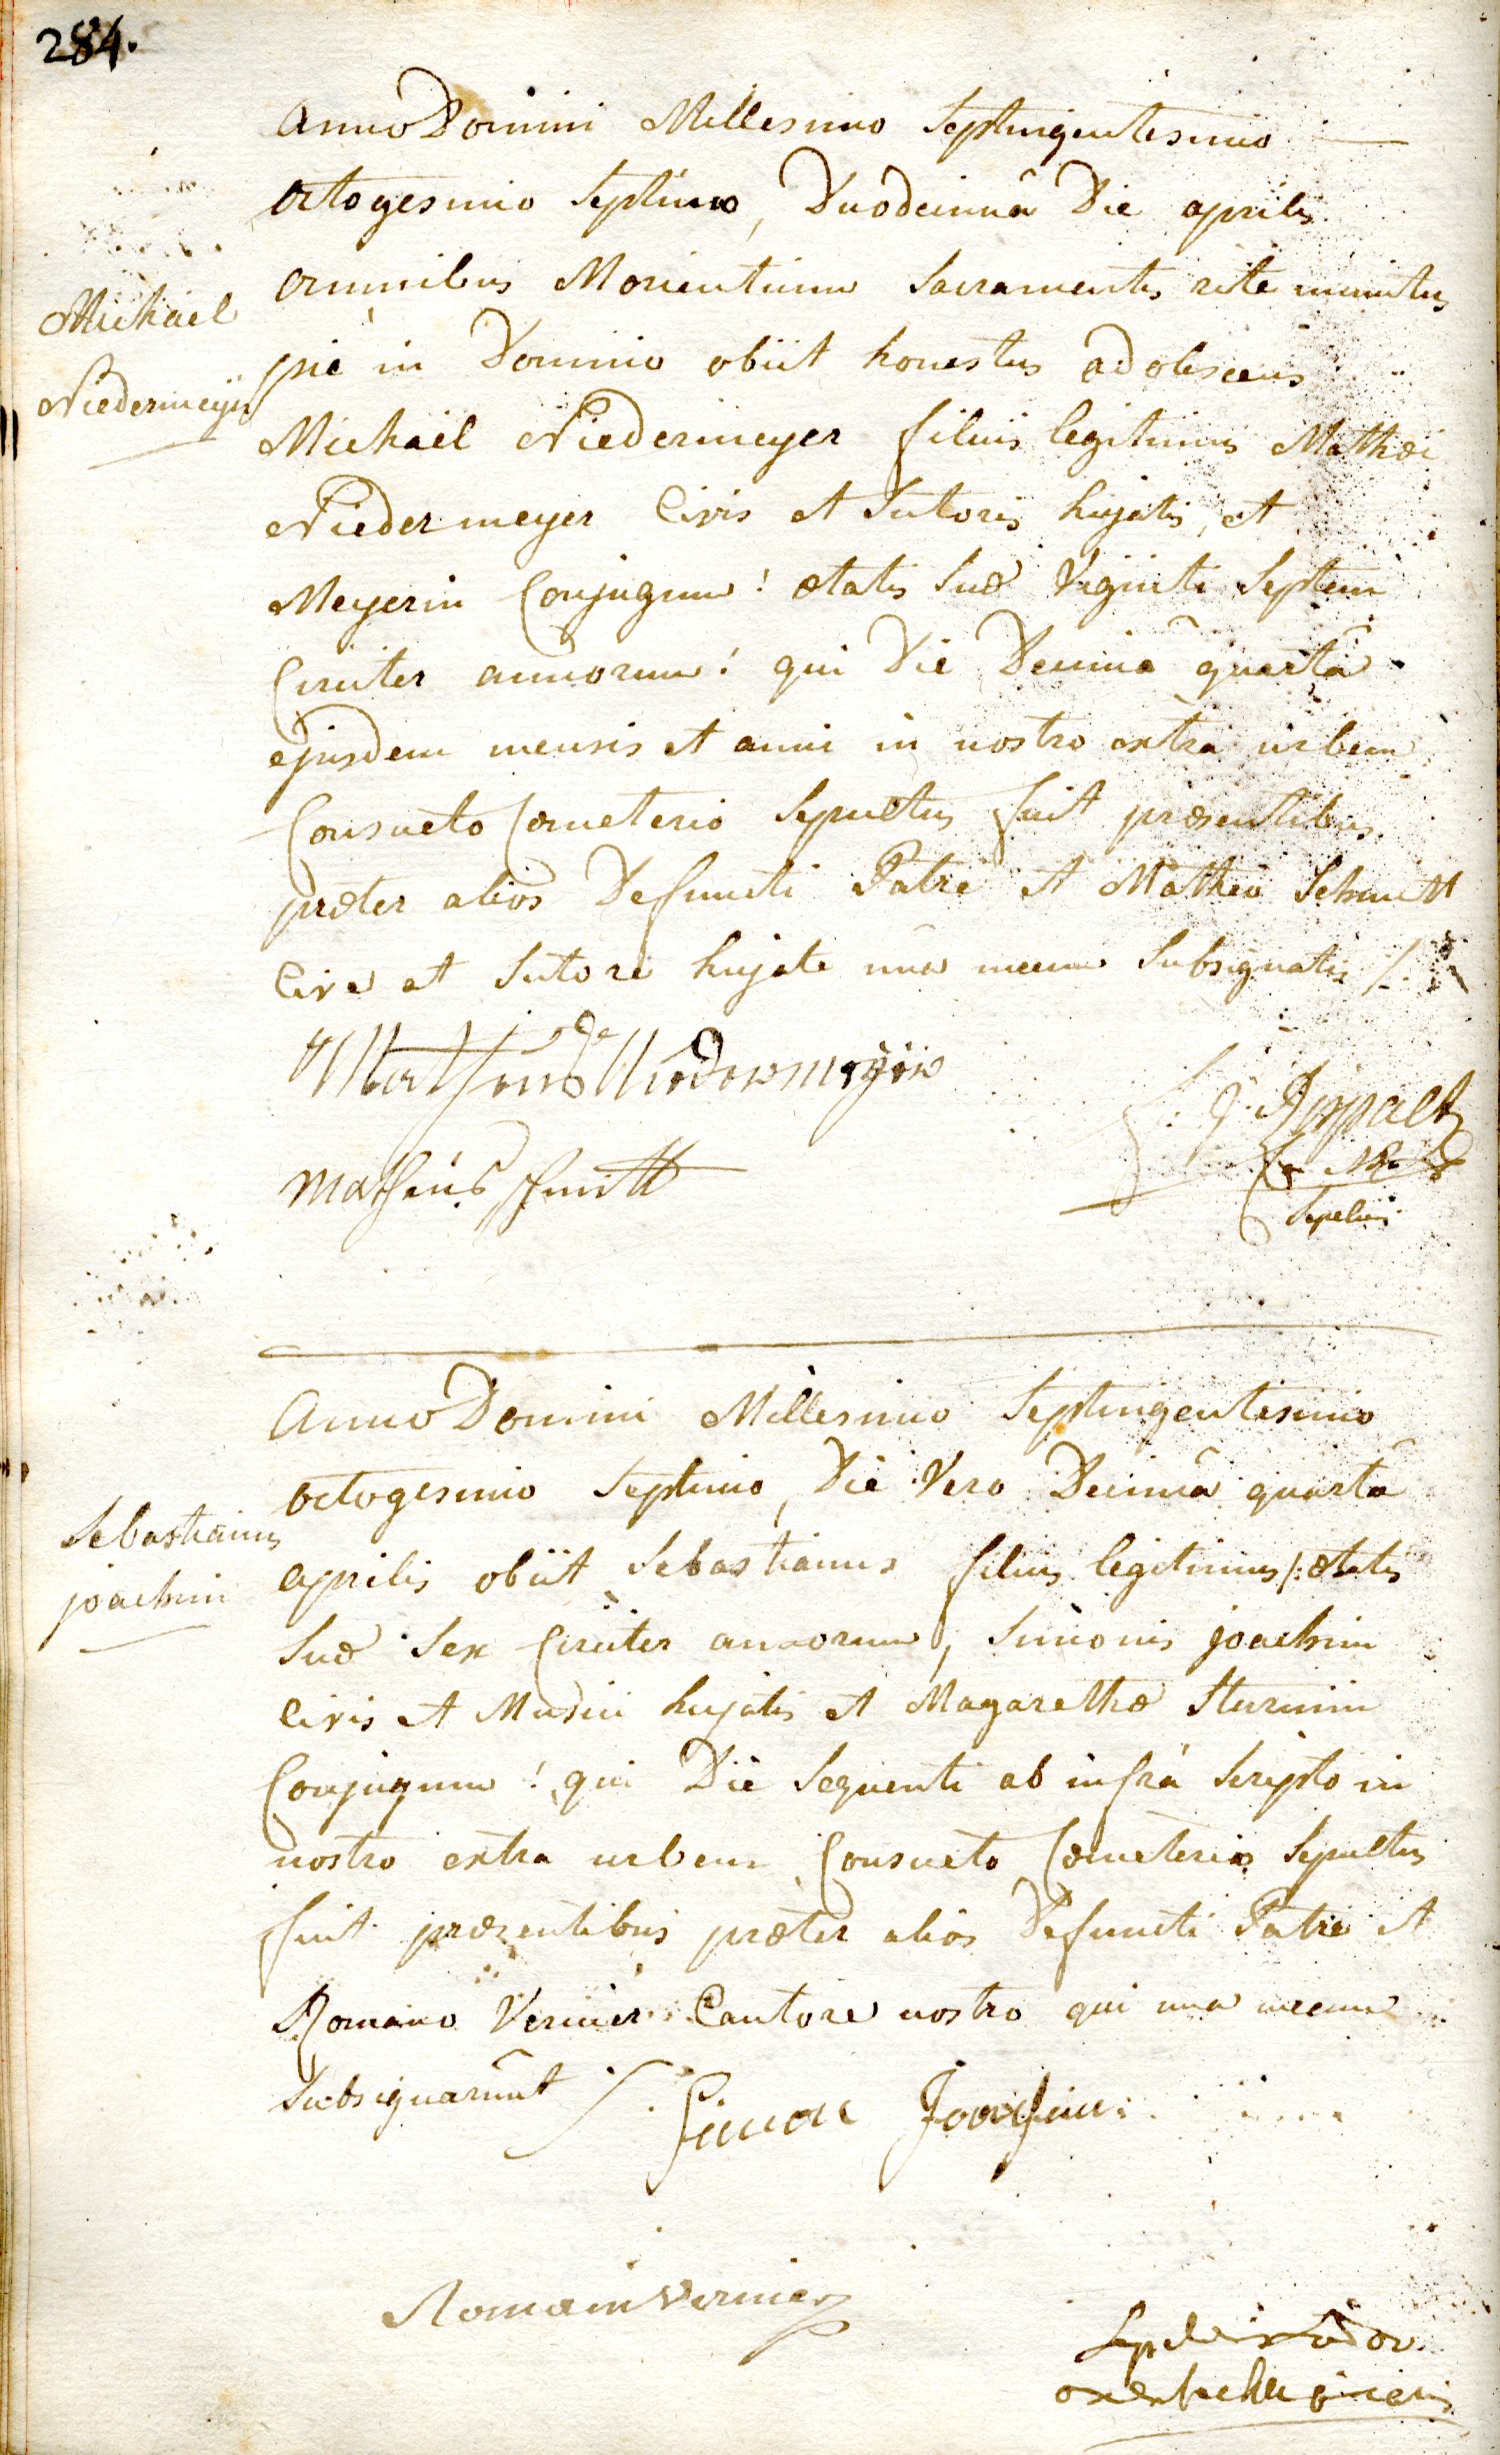 284.
Anno Domini Millesimo Septingentesimo
octogesimo Septimo, Duodecimâ Die aprilis
omnibus Morientium Sacramentis rite munitus
Michaël
piè in Domino obiit honestus adolescens
Niedermeyer
Michaël Niedermeyer filius legitimus Mathæi
Niedermeyer Civis et Sutoris hujatis, et
Meyerin Conjugum! ætatis Suæ Viginti Septem
Circiter annorum! qui Die Decimâ quartâ
ejusdem mensis et anni in nostro extra urbem
Consueto Cœmeterio Sepultus fuit præsentibus
præter alios Defuncti Patre et Matheo Schmitt
Cive et Sutore hujate una mecum Subsignatis /.
Matheus Niedermeyer
Matheus Schmitt
Sepelivi
Anno Domini Millesimo Septingentesimo
octogesimo Septimo, Die Vero Decimâ quartâ
Sebastianus
joachim
aprilis obiit Sebastianus filius legitimus /: ætatis
Suæ Sex Circiter annorum, Simonis joachim
Civis et Musici hujatis et Magarethæ Sturmin
Conjugum! qui Die Sequenti ab infrà Scripto in
nostro extra urbem Consueto Cœmeterio Sepultus
fuit præzentibus præter aliòs Defuncti Patre et
Romano Vernier Cantore nostro qui una mecum
Subsignarûnt /.
Simon Joachim
Romain Vernier